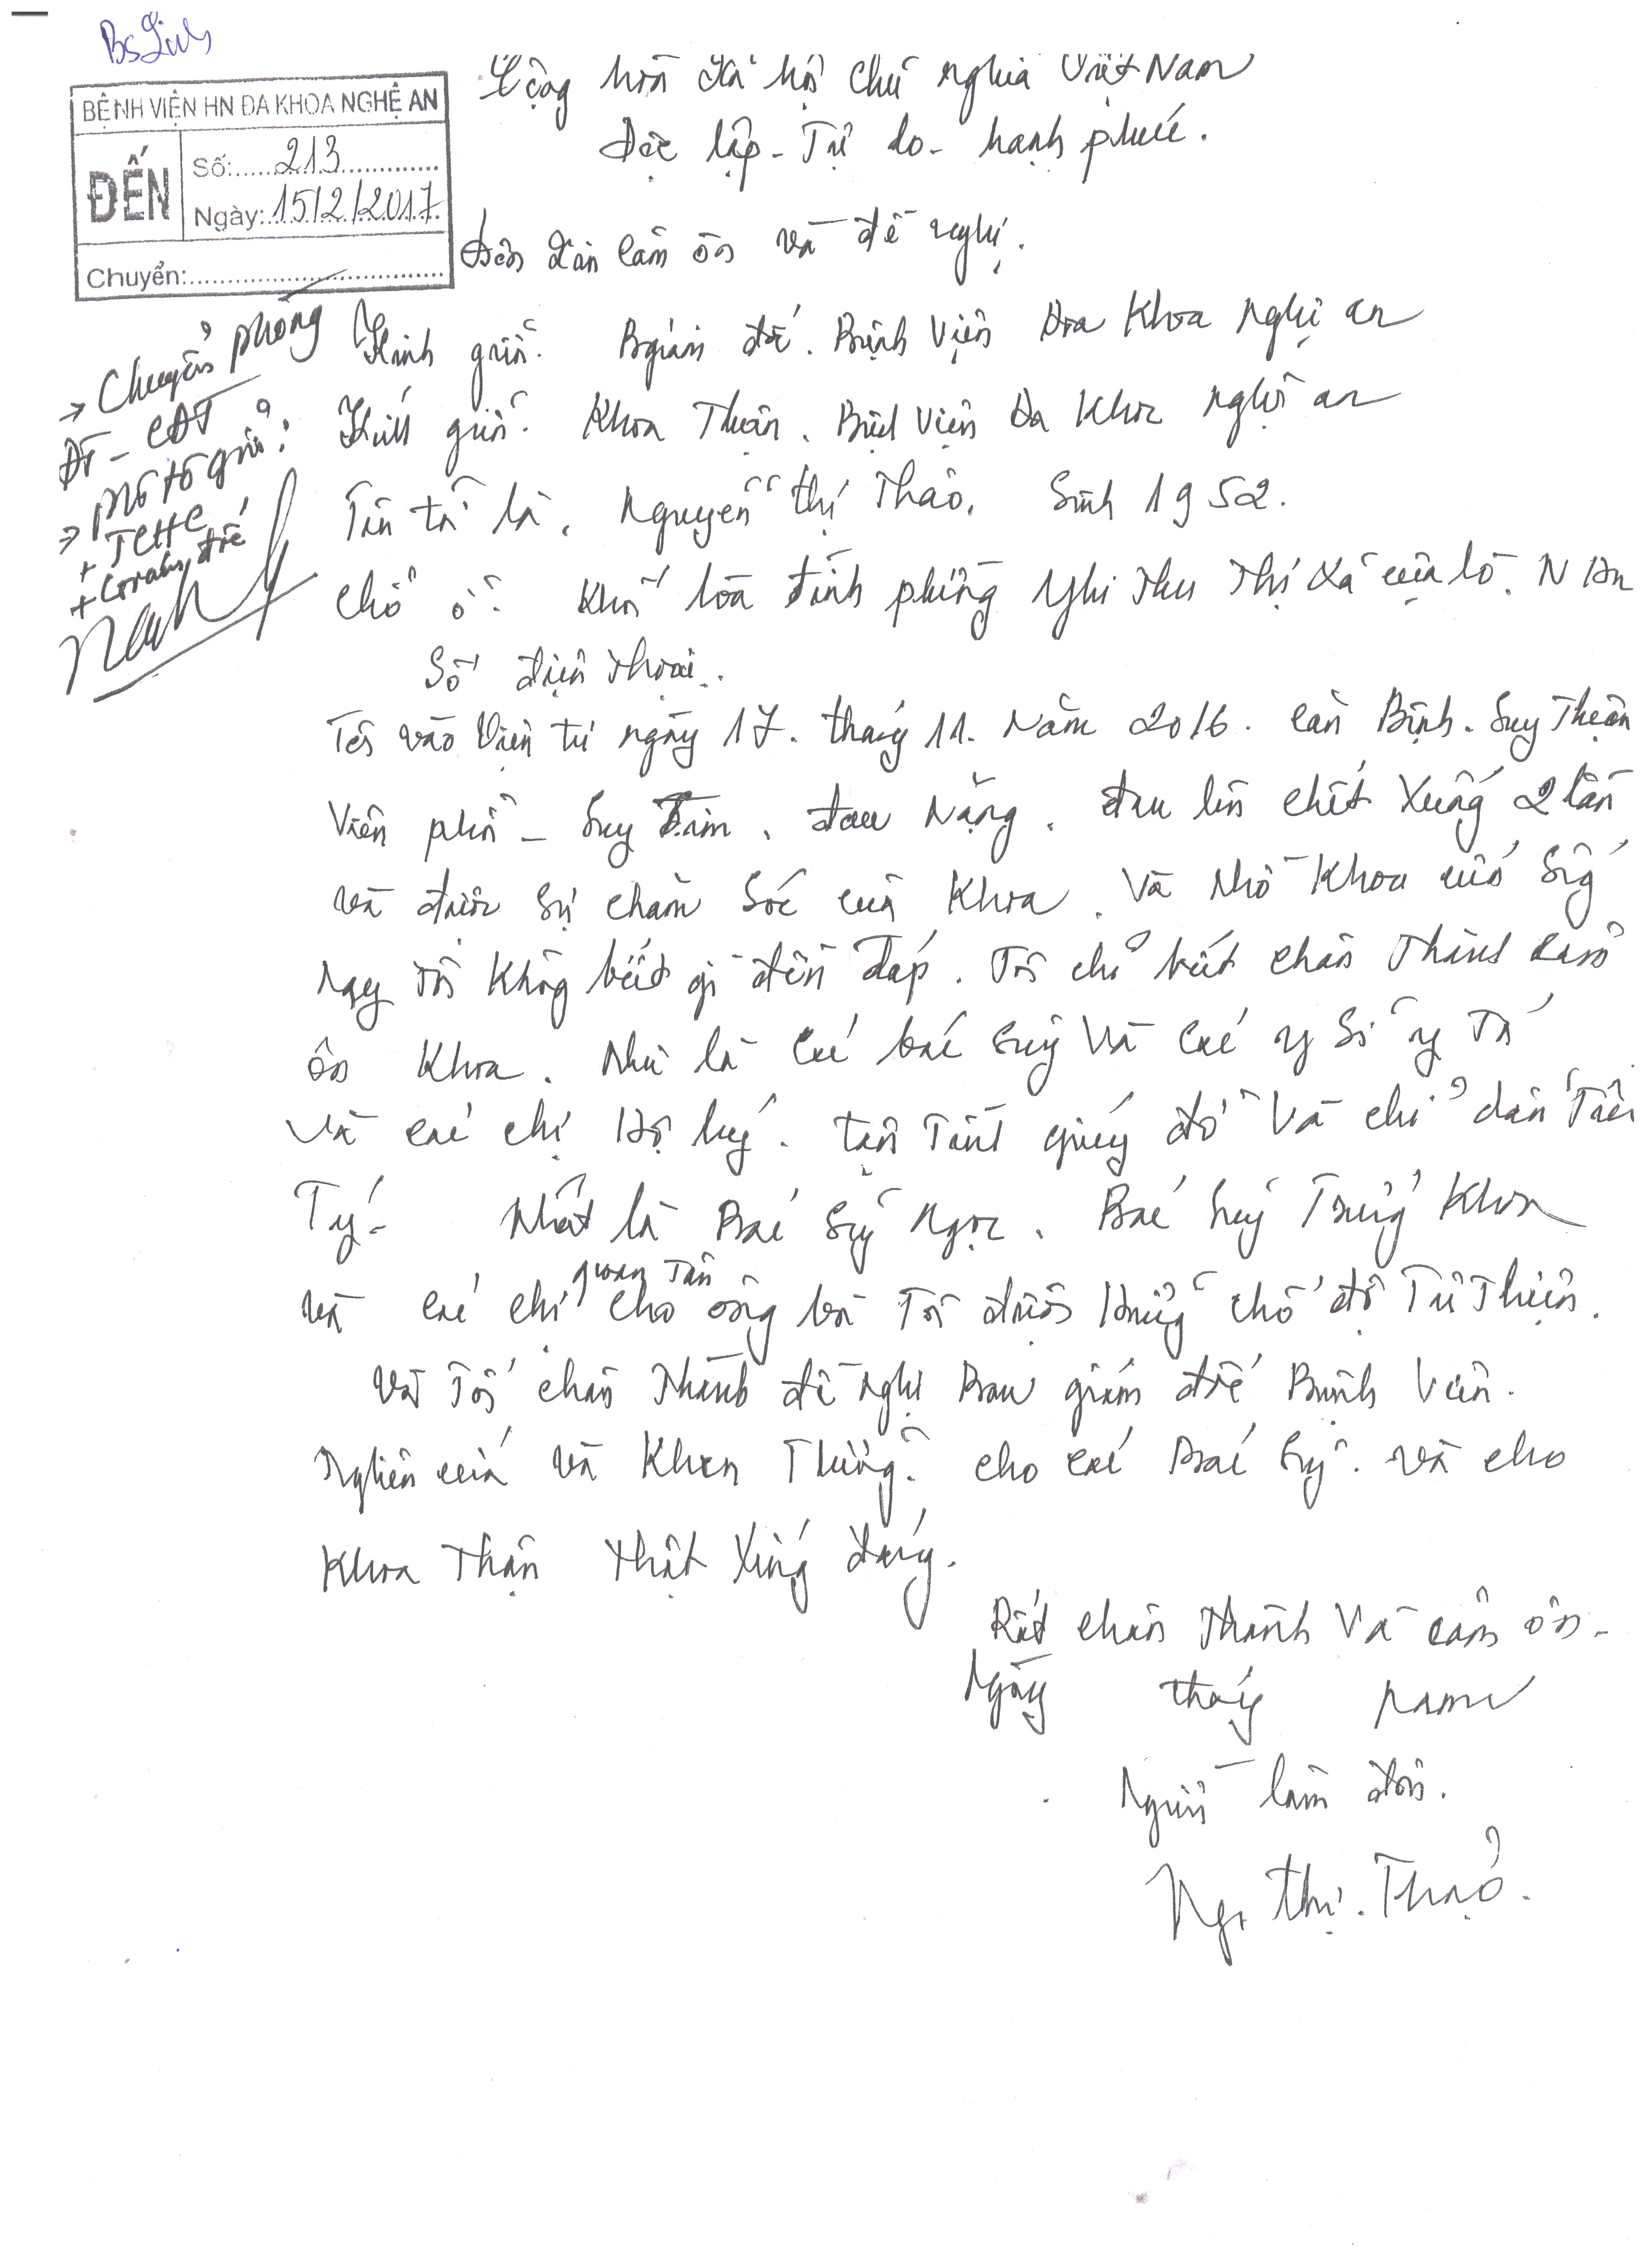 Bs Linh
BỆNH VIỆN HN ĐA KHOA NGHỆ AN
ĐẾN
Số: 213
Ngày: 15/2/2017
Chuyển:
Cộng hòa xã hội chủ nghĩa Việt Nam
Độc lập - Tự do - hạnh phúc.
Đơn xin cảm ơn và đề nghị.
→ Chuyển phòng
ĐT - CĐT
→ Mô tô gửi:
+ TCHC
+ Giám đốc
Kính gửi: B giám đốc. Bệnh viện Đa Khoa Nghệ an
Kính gửi: Khoa Thận. Bệnh viện Đa Khoa nghệ an
Tên tôi là. Nguyễn thị Thảo. Sinh 1952.
Chổ ở: Khối hòa đình phường Nghi Thu Thị xã cửa lò. N An
Số điện thoại..
Tôi vào viện từ ngày 17. tháng 11. Năm 2016. căn Bệnh. Suy Thận
Viêm phổi - Suy Tim. đau Nặng. đau lên chết xuống 2 lần
và được sự chăm sóc của Khoa. Và nhờ Khoa cứu sống
nay tôi không biết gì đền đáp. Tôi chỉ biết chân thành cảm
ơn Khoa. Như là các bác sỹ và các y sĩ y Tá
và các chị Hộ lý. tận Tình giúy đỡ và chỉ dẫn Tân
Tỵ. Nhất là Bác sỹ Ngọc. Bác sỹ Trưởng Khoa
và các chị quan Tân cho ông bà Tôi được Hưởng chế độ Từ Thiện.
Và Tôi chân Thành đề nghị Ban giám đốc Bệnh Viện.
Nghiên cứu và Khen Thưởng. cho các Bác sỹ. và cho
Khoa Thận thật xứng đáng.
Rất chân thành và cảm ơn -
Ngày tháng năm
Người làm đơn.
Ng. Thị. Thảo.